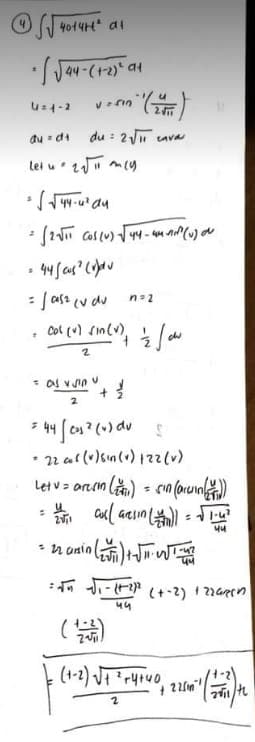 ④ ∫√40+4t-t² dt
= ∫√44-(t-2)² dt
u=t-2 v=sin⁻¹(u/2√11)
du=dt du=2√11 cosv dv
Let u=2√11 sin(v)
= ∫√44-u² du
= ∫2√11 cos(v)√44-44sin²(v) dv
= 44∫cos²(v)dv
= ∫cos²(v dv n=2
= cos(v) sin(v)/2 + 1/2∫dv
= cos v sin v/2 + v/2
= 44∫cos²(v) dv
= 22 cos(v)sin(v)+22(v)
Let v=arcsin(u/2√11) = sin(arcsin(u/2√11))
= u/2√11 cos(arcsin(u/2√11)) = √1-u²/44
= 22 arcsin(u/2√11)+√11·u√1-u²/44
= √11 √1-(t-2)²/44 (t-2)+22arcsin
(t-2/2√11)
= (t-2)√t²+4t+40/2 + 22sin⁻¹(t-2/2√11)+c